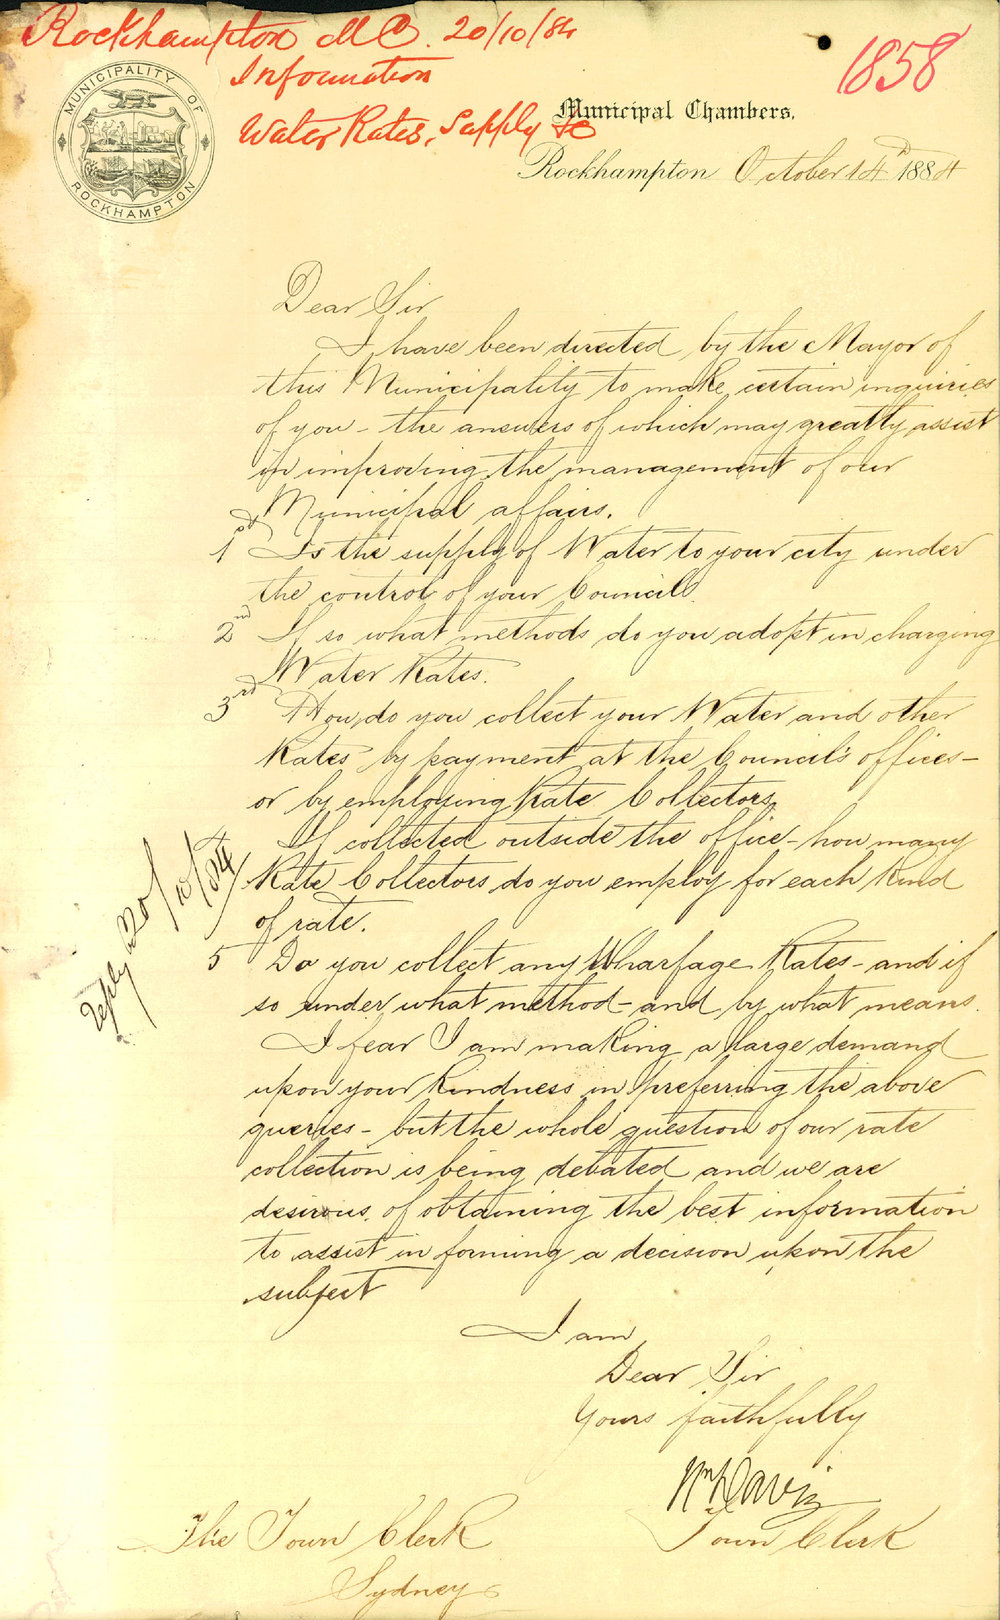 Rockhampton M C. 20/10/84
Information
Water Rates, Supply &c
1858
MUNICIPALITY OF ROCKHAMPTON
Municipal Chambers,
Rockhampton October 14th 1884
Dear Sir
I have been directed by the Mayor of
this Municipality to make certain inquiries
of you – the answers of which may greatly assist
in improving the management of our
Municipal affairs.
1st Is the supply of Water to your city under
the control of your Council.
2nd If so what methods do you adopt in charging
Water Rates.
3rd How do you collect your Water and other
Rates by payment at the Council's offices –
or by employing Rate Collectors.
4 If collected outside the office – how many
Rate Collectors do you employ for each kind
of rate.
5 Do you collect any Wharfage Rates – and if
so under what method – and by what means.
I fear I am making a large demand
upon your kindness in preferring the above
queries – but the whole question of our rate
collection is being debated and we are
desirous of obtaining the best information
to assist in forming a decision upon the
subject
I am
Dear Sir
Yours faithfully
Wm Davis
Town Clerk
The Town Clerk
Sydney
Reply 20/10/84